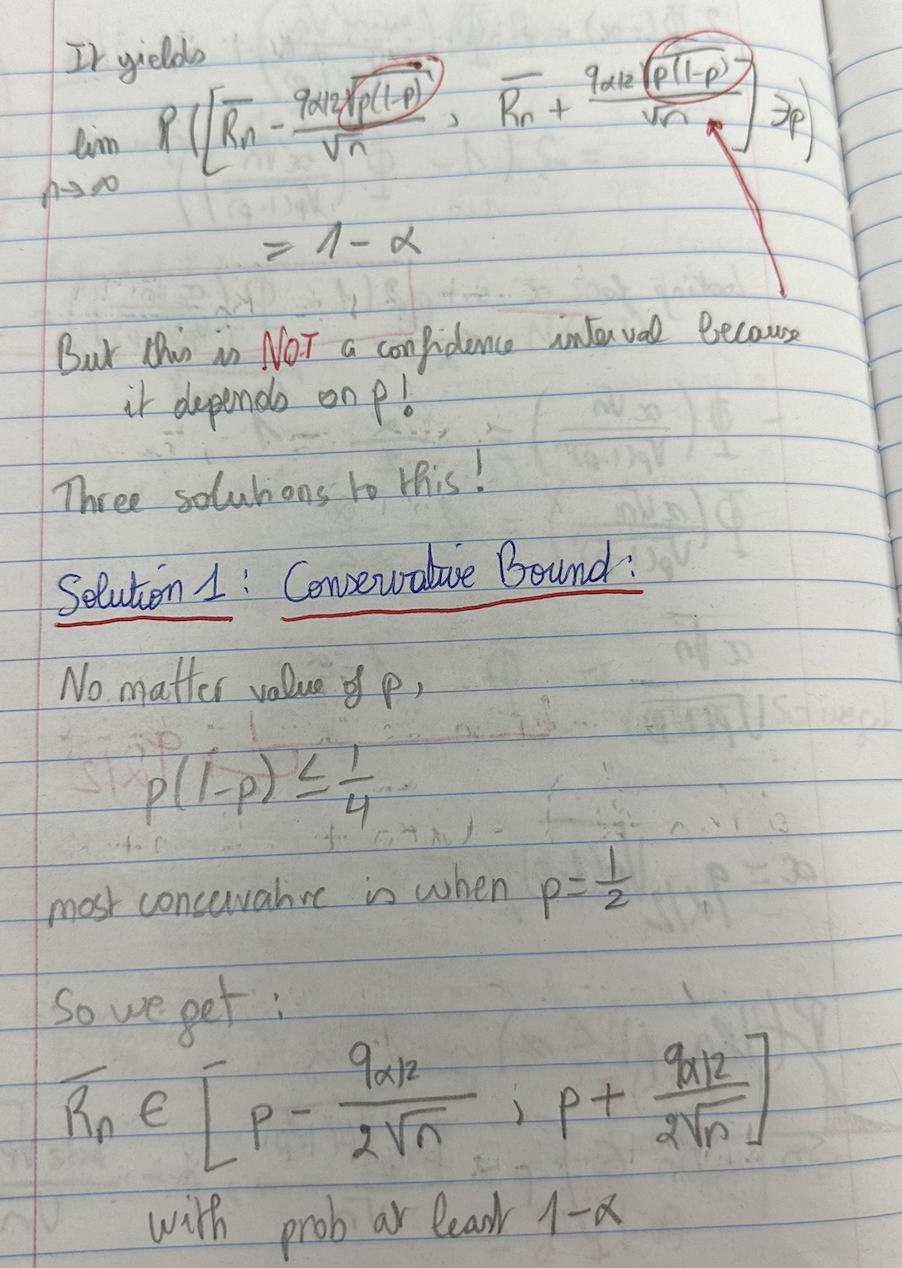 It yields
lim n→∞ P([R̄n - qα/2 √p(1-p) / √n , R̄n + qα/2 √p(1-p) / √n] ∋ p)
= 1 - α
But this is NOT a confidence interval because
it depends on p!
Three solutions to this!
Solution 1: Conservative Bound:
No matter value of p,
p(1-p) ≤ 1/4
most conservative is when p = 1/2
So we get:
R̄n ∈ [p - qα/2 / 2√n ; p + qα/2 / 2√n]
with prob at least 1-α